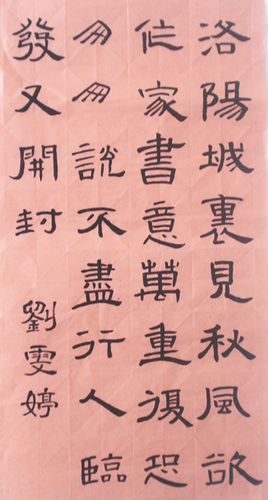 洛陽城裏見秋風欲
作家書意萬重復恐
匆匆說不盡行人臨
發又開封
劉雯婷